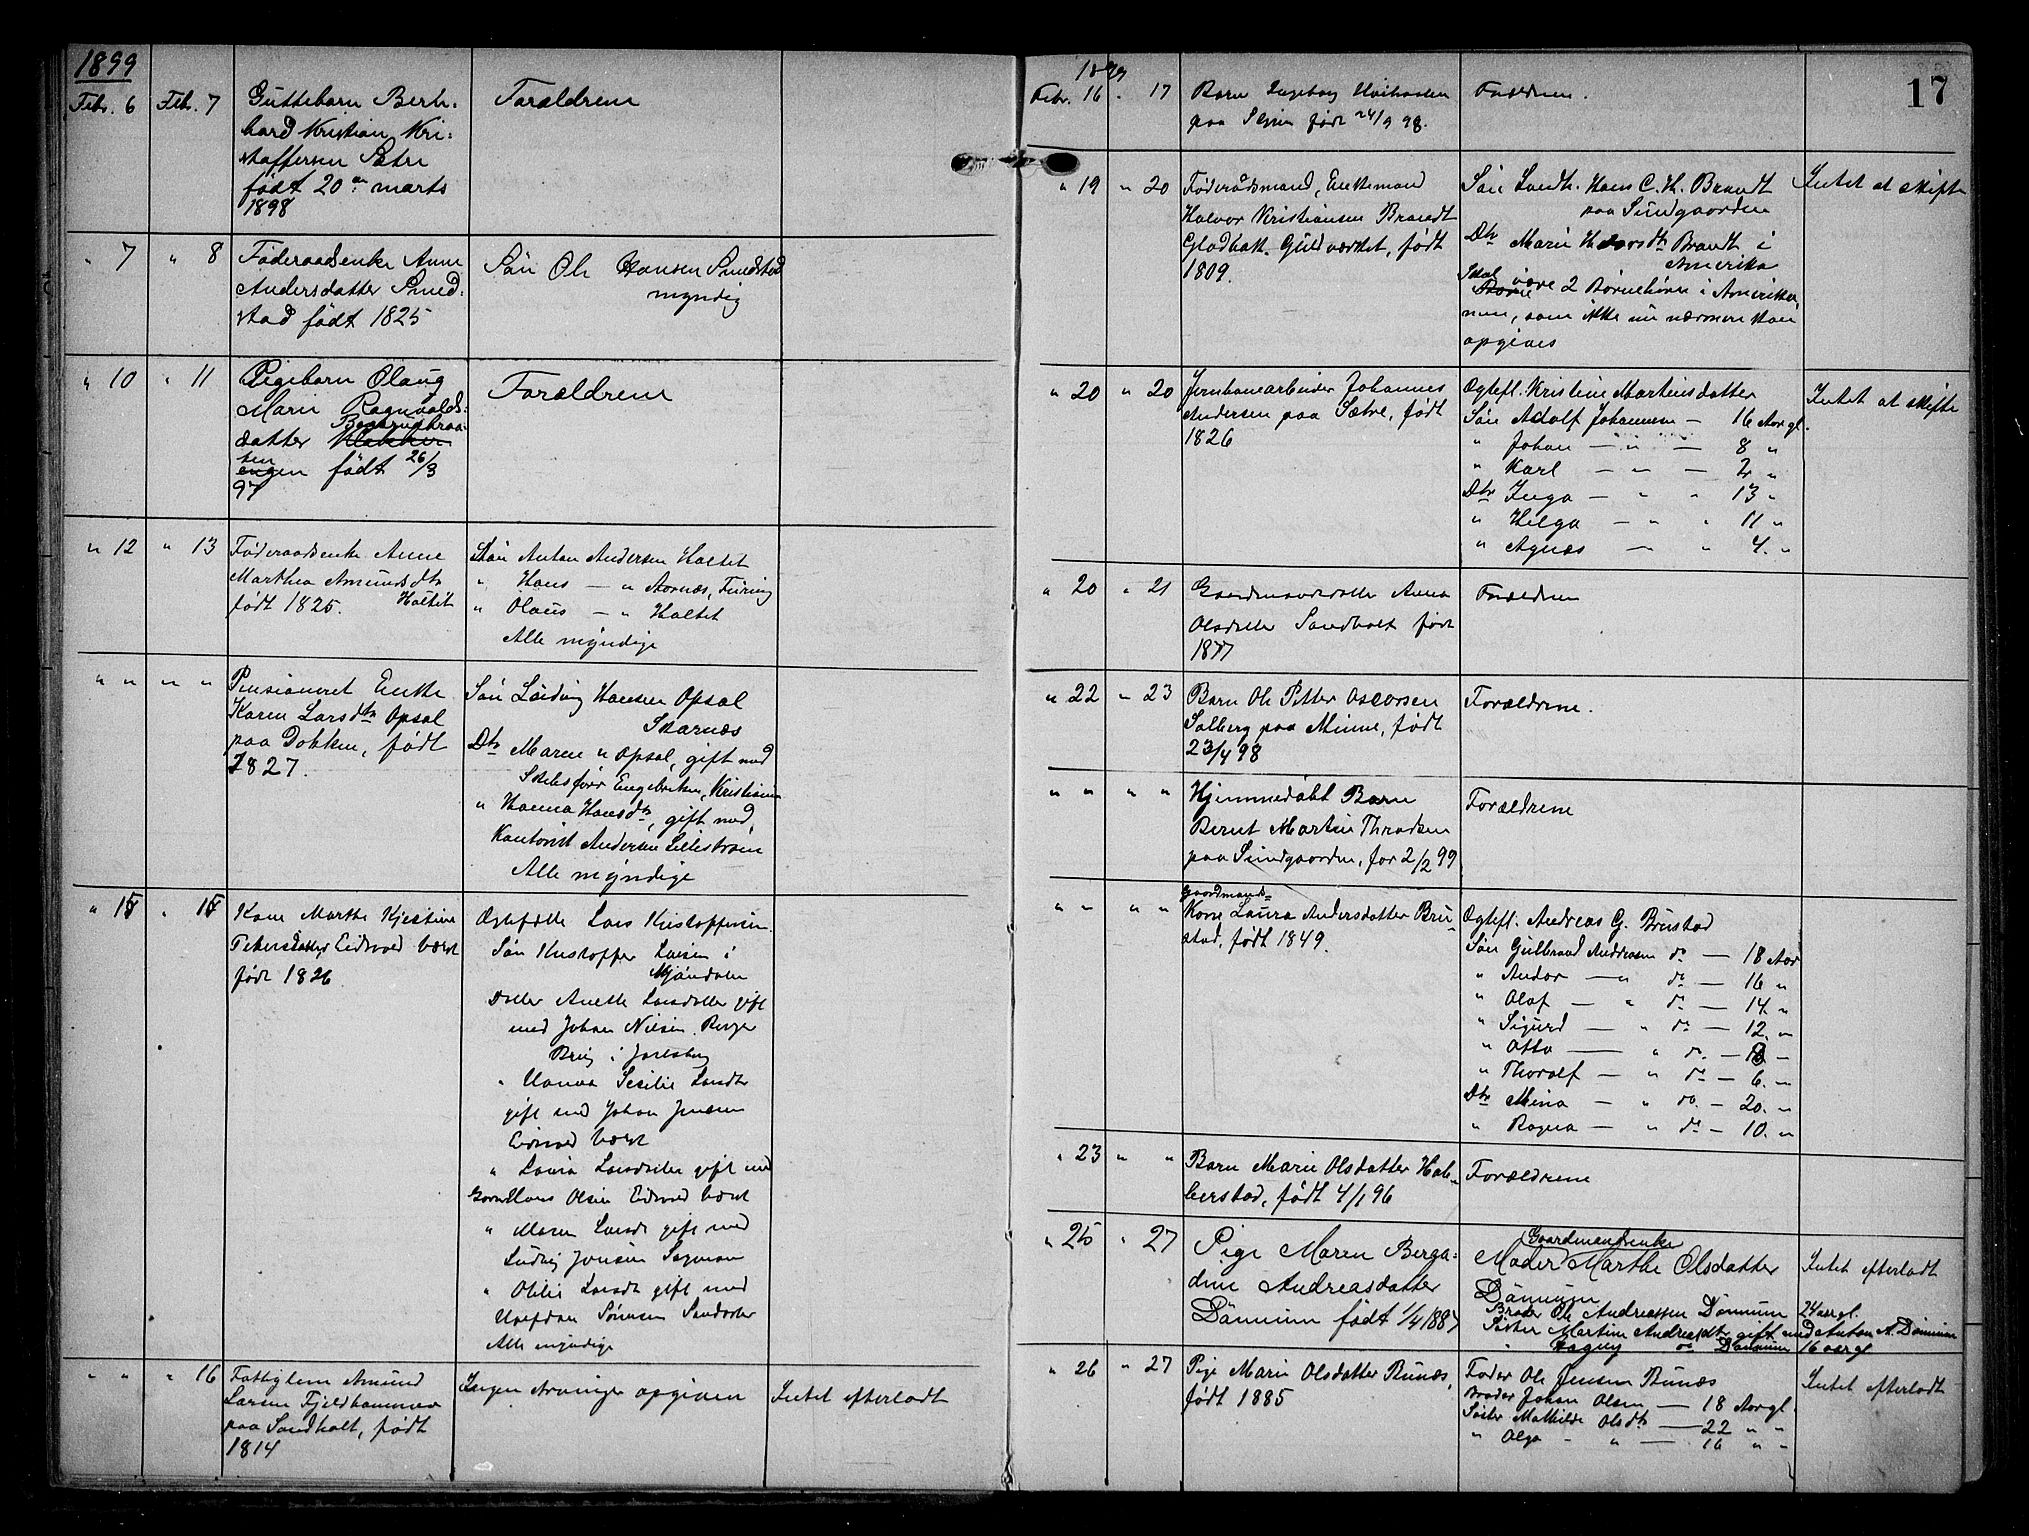 1899
Febr. 6 Feb. 7 Guttebarn Bern-
hard Kristian Kri-
stoffersen Sætre
født 20de marts
1898
Forældrene
" 7 " 8 Føderaadsenke Anne
Andersdatter Smed-
stad født 1825
Søn Ole Hansen Smedstad
myndig
" 10 " 11 Pigebarn Olaug
Marie Ragnvalds-
datter
født 26/3
97
Forældrene
" 12 " 13 Føderaadsenke Anne
Marthea Amundsdtr
født 1825. Holtet
Søn Anton Andersen Holtet
" Hans — " Aarnæs, Furing
" Olaus — " Holtet
Alle myndige
" " " " Pensioneret Enke
Karen Larsdtr Opsal
paa Dokken, født
1827.
Søn Ludvig Hansen Opsal
Skarnæs
Dtr Maren " Opsal, gift med
Skibsfører Engebretsen, Kristiania
" Hanna Hansdtr, gift med
Kontorist Andersen Lillestrøm
Alle myndige
" 15 " 15 Kone Marthe Kjestine
Petersdatter Eidsvold Værk
født 1826
Ægtefælle Lars Kristoffersen.
Søn Kristoffer Larsen i
Mjøndalen
Datter Anette Larsdatter gift
med Johan Nilsen
i Jarlsberg
" Hanna Sesilie Larsdtr
gift med Johan Jensen
Eidsvold Værk
" Lovisa Larsdatter gift med
Hans Olsen Eidsvold Værk
" Maren Larsdt gift med
Ludvig Jensen
" Otilie Larsdt gift med
Halfdan Sørensen
Alle myndige
" " " 16 Fattiglem Amund
Larsen Fjeldhammer
paa Sandholt, født
1814
Ingen Arvinger opgiven
Intet efterladt
17
1899
Febr. 16 " 17 Barn Ingeborg
paa født 24/9 98.
Forældrene.
" 19 " 20 Føderådsmand, Enkemand
Halvor Kristiansen Brandt
Gladbak. Guldværket, født
1809.
Søn Landh. Hans C. H. Brandt
paa Sundgaarden
Dtr Marie Halvorsdtr Brandt i
Amerika
Skal være 2 Børnebørn i Amerika,
men, som ikke nu nærmere kan
opgives
Intet at skifte
" 20 " 20 Jernbanearbeider Johannes
Andersen paa Sætre, født
1826
Ægtefl. Kristine Martinsdatter
Søn Adolf Johannesen — 16 Aar gl.
" Johan — " — 8 "
" Karl — " — 2 "
Dtr Inga — " " 13 "
" Helga — " " 11 "
" Agnes — " " 4. "
Intet at skifte
" 20 " 21 Gaardmandsdatter Anna
Olsdatter Sandholt født
1877
Forældrene
" 22 " 23 Barn Ole Petter Oscarsen
Solberg paa Minne, født
23/4 98
Forældrene.
" " " " Hjemmedøbt Barn
Bernt Martin Throndsen
paa Sundgaarden, før 2/2 99
Forældrene
" " " " Gaardmands-
Kone Laura Andersdatter Bru-
stad, født 1849.
Ægtefl. Andreas G. Brustad
Søn Gulbrand Andreasen do — 18 Aar
" Andor — " do — 16 "
" Olaf — " do — 14 "
" Sigurd — " do — 12 "
" Otto — " do — 8 "
" Thoralf — " do — 6. "
Dtr Mina — " do. — 20. "
" Ragna — " do — 10. "
" 23 " " Barn Marie Olsdatter Hab-
berstad, født 4/1 96
Forældrene
" 25 " 27 Pige Maren Berga-
dine Andreasdatter
Dønnum født 1/4 1887
Gaardmandsenke
Moder Marthe Olsdatter
Dønnum
Broder Ole Andreassen Dønnum 24 aar gl.
Søster Martine Andreasdtr gift med Anton A. Dønnum
" Dagny do Dønnum 16 aar gl.
Intet efterladt
" 26 " 27 Pige Marie Olsdatter Bunæs,
født 1885
Fader Ole Jensen Bunæs
Broder Johan Olsen — 18 Aar gl.
Søster Mathilde Olsdtr — 22 " "
" Olga — " — 16 " "
Intet efterladt